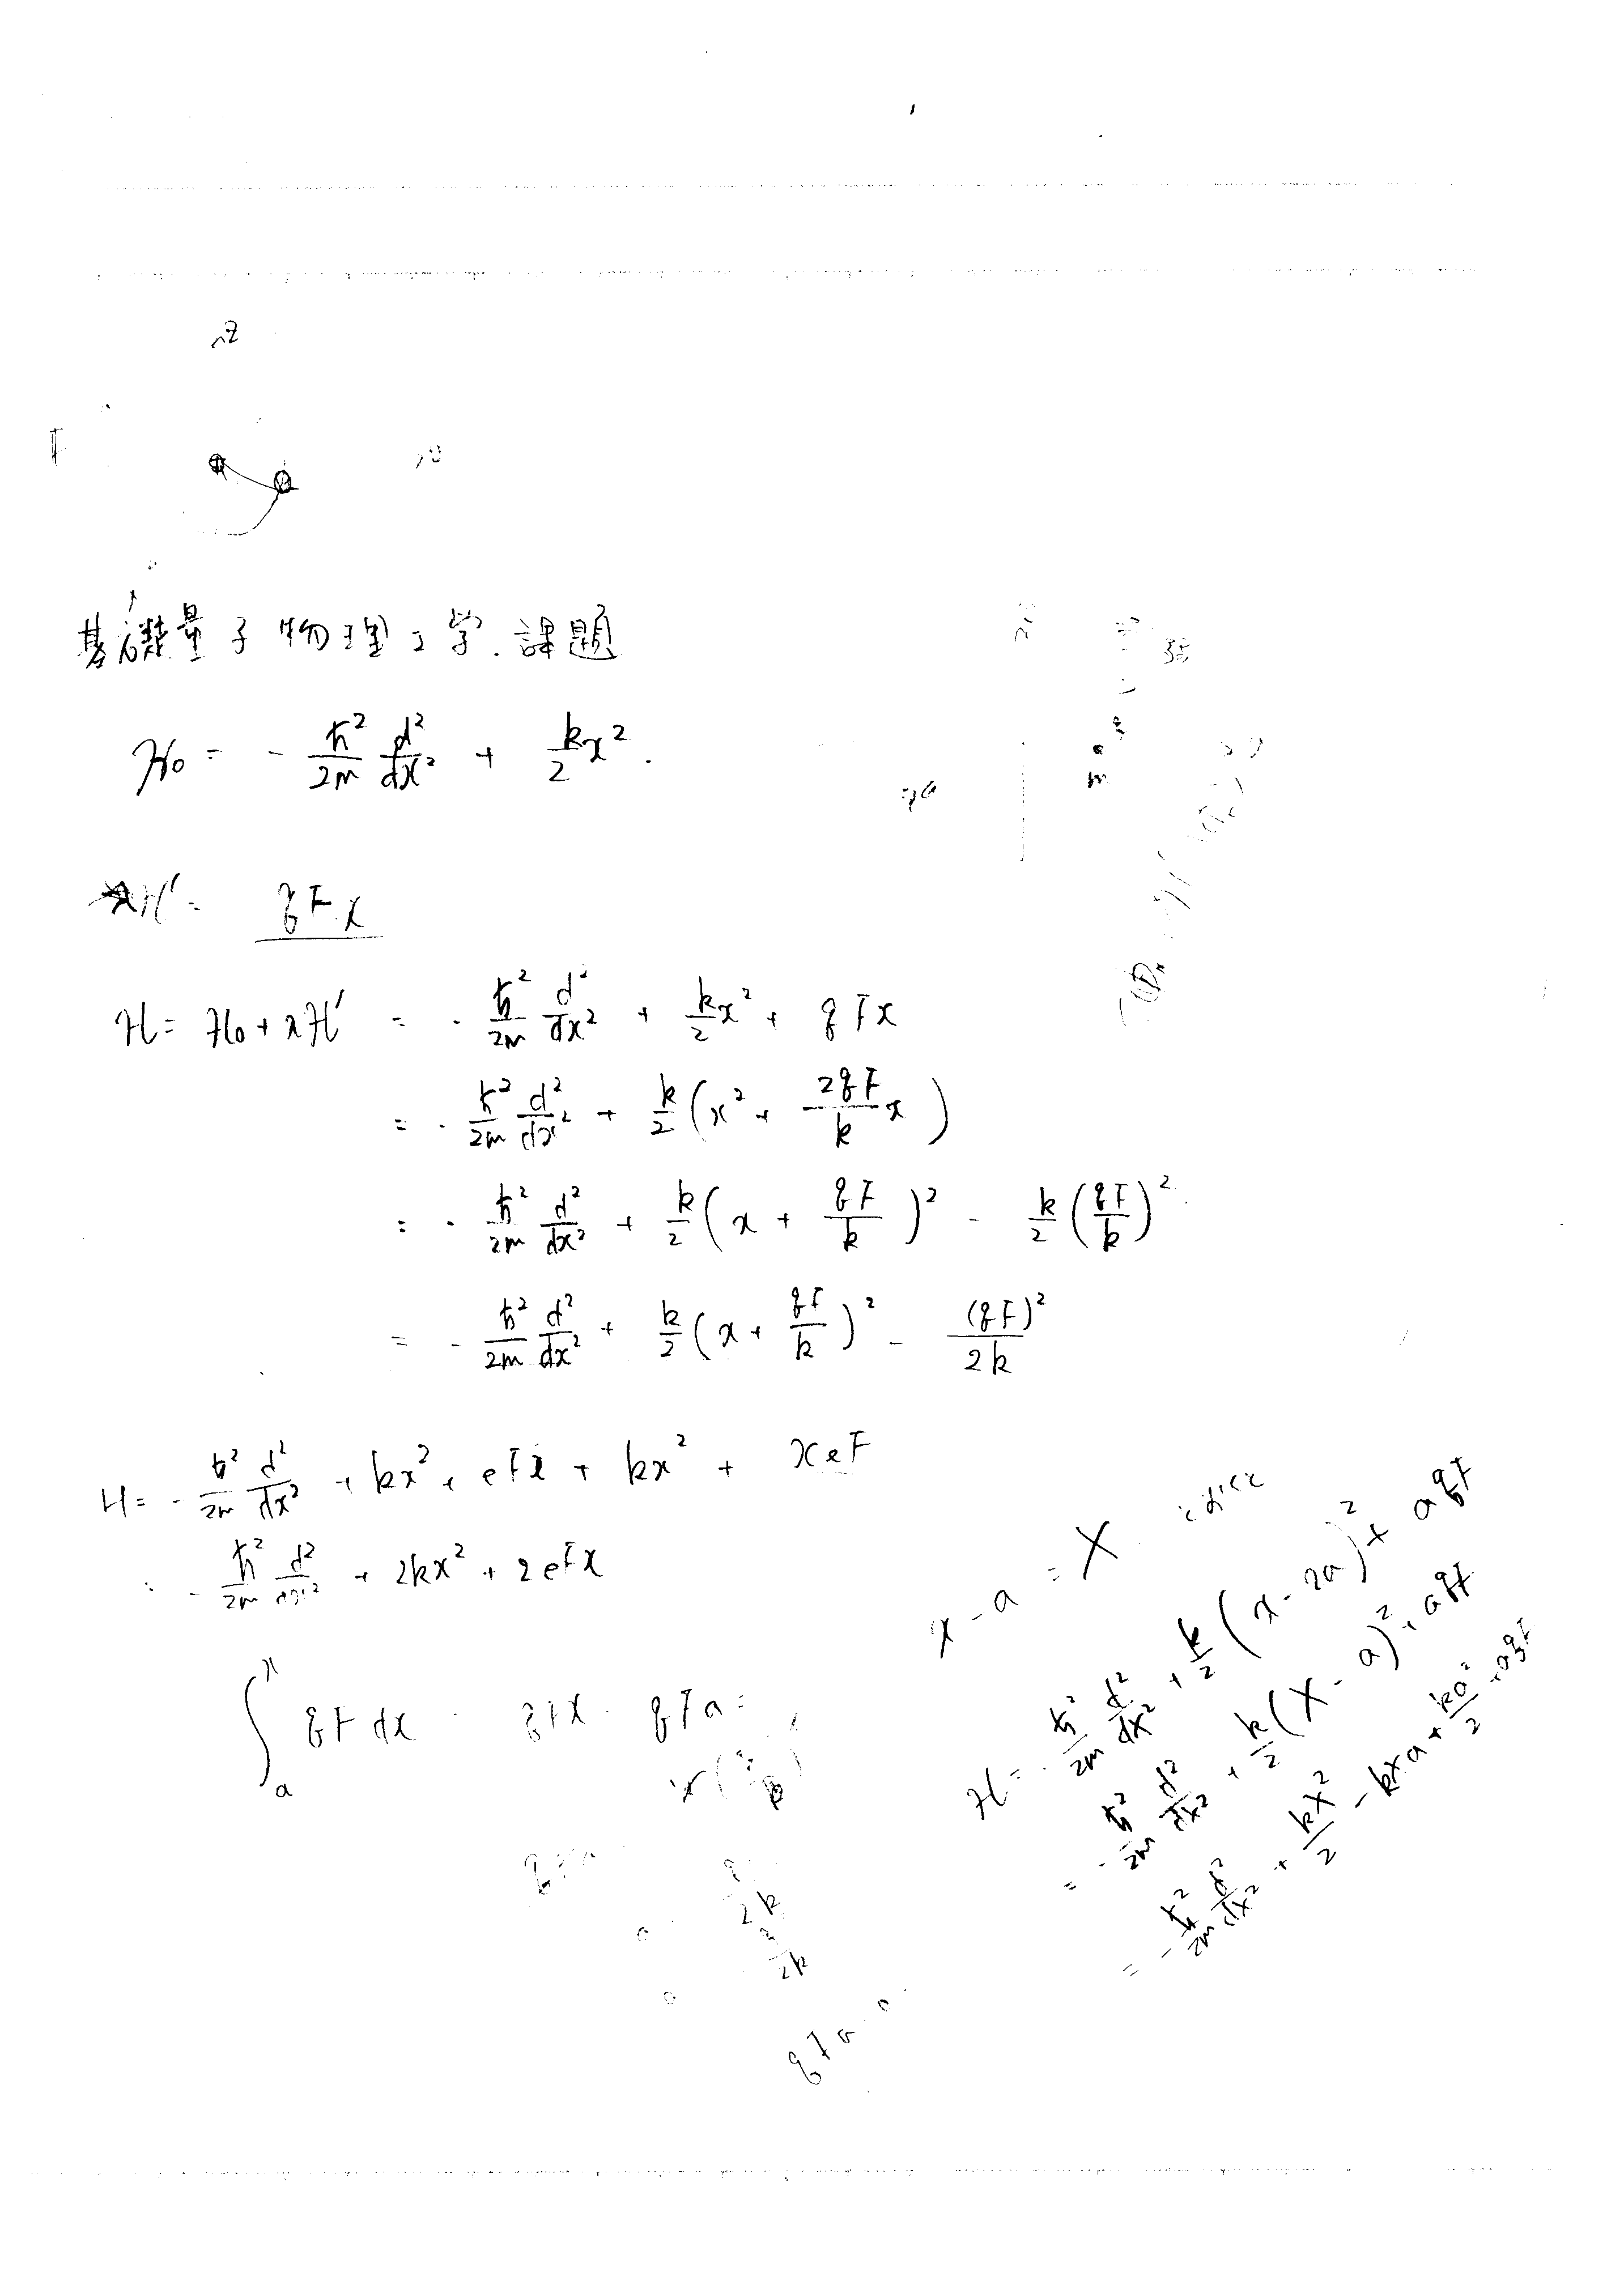 基礎量子物理工学.課題
ℋ₀ = - ℏ²/2m d²/dx² + k/2 x².
λℋ' = qFx
ℋ = ℋ₀ + λℋ' = - ℏ²/2m d²/dx² + k/2 x² + qFx
= - ℏ²/2m d²/dx² + k/2 (x² + 2qF/k x)
= - ℏ²/2m d²/dx² + k/2 (x + qF/k)² - k/2 (qF/k)²
= - ℏ²/2m d²/dx² + k/2 (x + qF/k)² - (qF)²/2k
H = - ℏ²/2m d²/dx² + kx² + eFx + kx² + xeF
= - ℏ²/2m d²/dx² + 2kx² + 2eFx
∫ₐˣ qF dx = qFx - qFa =
x - a = X
ℋ = - ℏ²/2m d²/dx² + k/2 (x - 2a)² + aqF
= - ℏ²/2m d²/dx² + k/2 (X - a)² + aqF
= - ℏ²/2m d²/dx² + kX²/2 - kXa + ka²/2 + aqF
2k
2k
qFa = 0